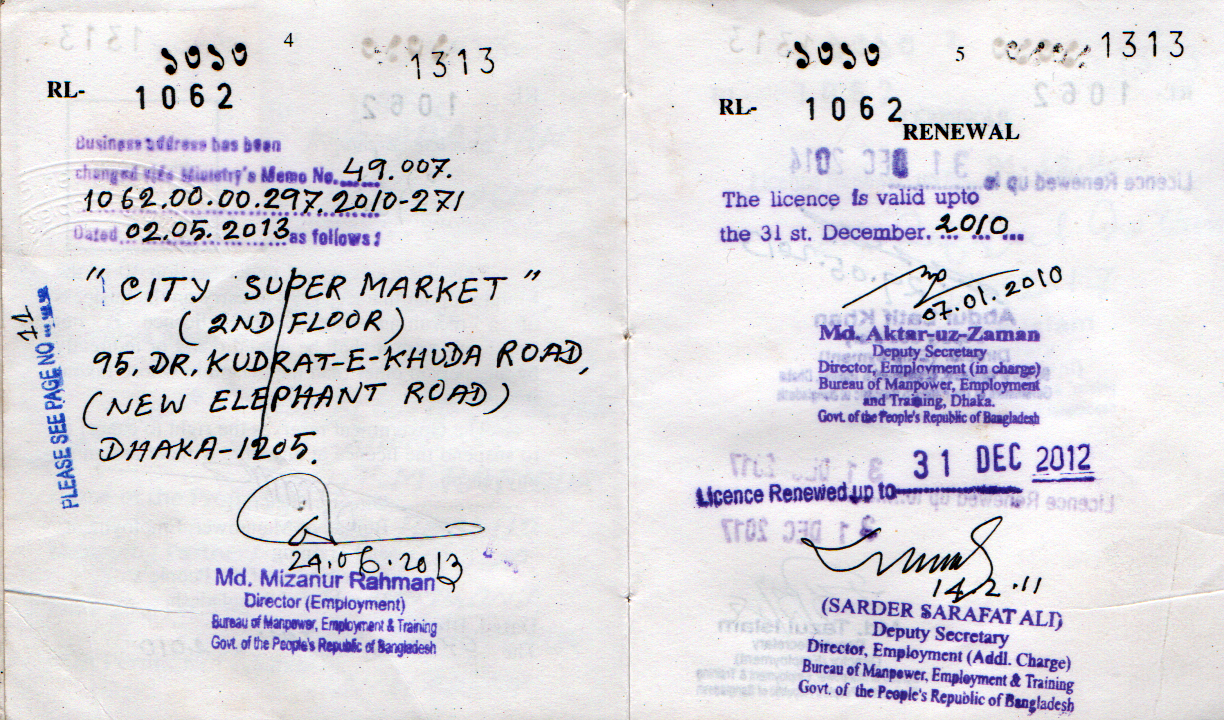 4
১০১০
1313
RL- 1062
Business address has been
changed vide Ministry's Memo No. 49.007.
1062.00.00.297.2010-271
Dated 02.05.2013 as follows:
"CITY SUPER MARKET"
(2ND FLOOR)
95, DR. KUDRAT-E-KHUDA ROAD,
(NEW ELEPHANT ROAD)
DHAKA-1205.
PLEASE SEE PAGE NO... 11
24.06.2013
Md. Mizanur Rahman
Director (Employment)
Bureau of Manpower, Employment & Training
Govt. of the People's Republic of Bangladesh
5
১০১০
1313
RL- 1062
RENEWAL
The licence is valid upto
the 31 st. December. 2010
07.01.2010
Md. Aktar-uz-Zaman
Deputy Secretary
Director, Employment (in charge)
Bureau of Manpower, Employment
and Training, Dhaka.
Govt. of the People's Republic of Bangladesh
31 DEC 2012
Licence Renewed up to
(SARDER SARAFAT ALI)
Deputy Secretary
Director, Employment (Addl. Charge)
Bureau of Manpower, Employment & Training
Govt. of the People's Republic of Bangladesh